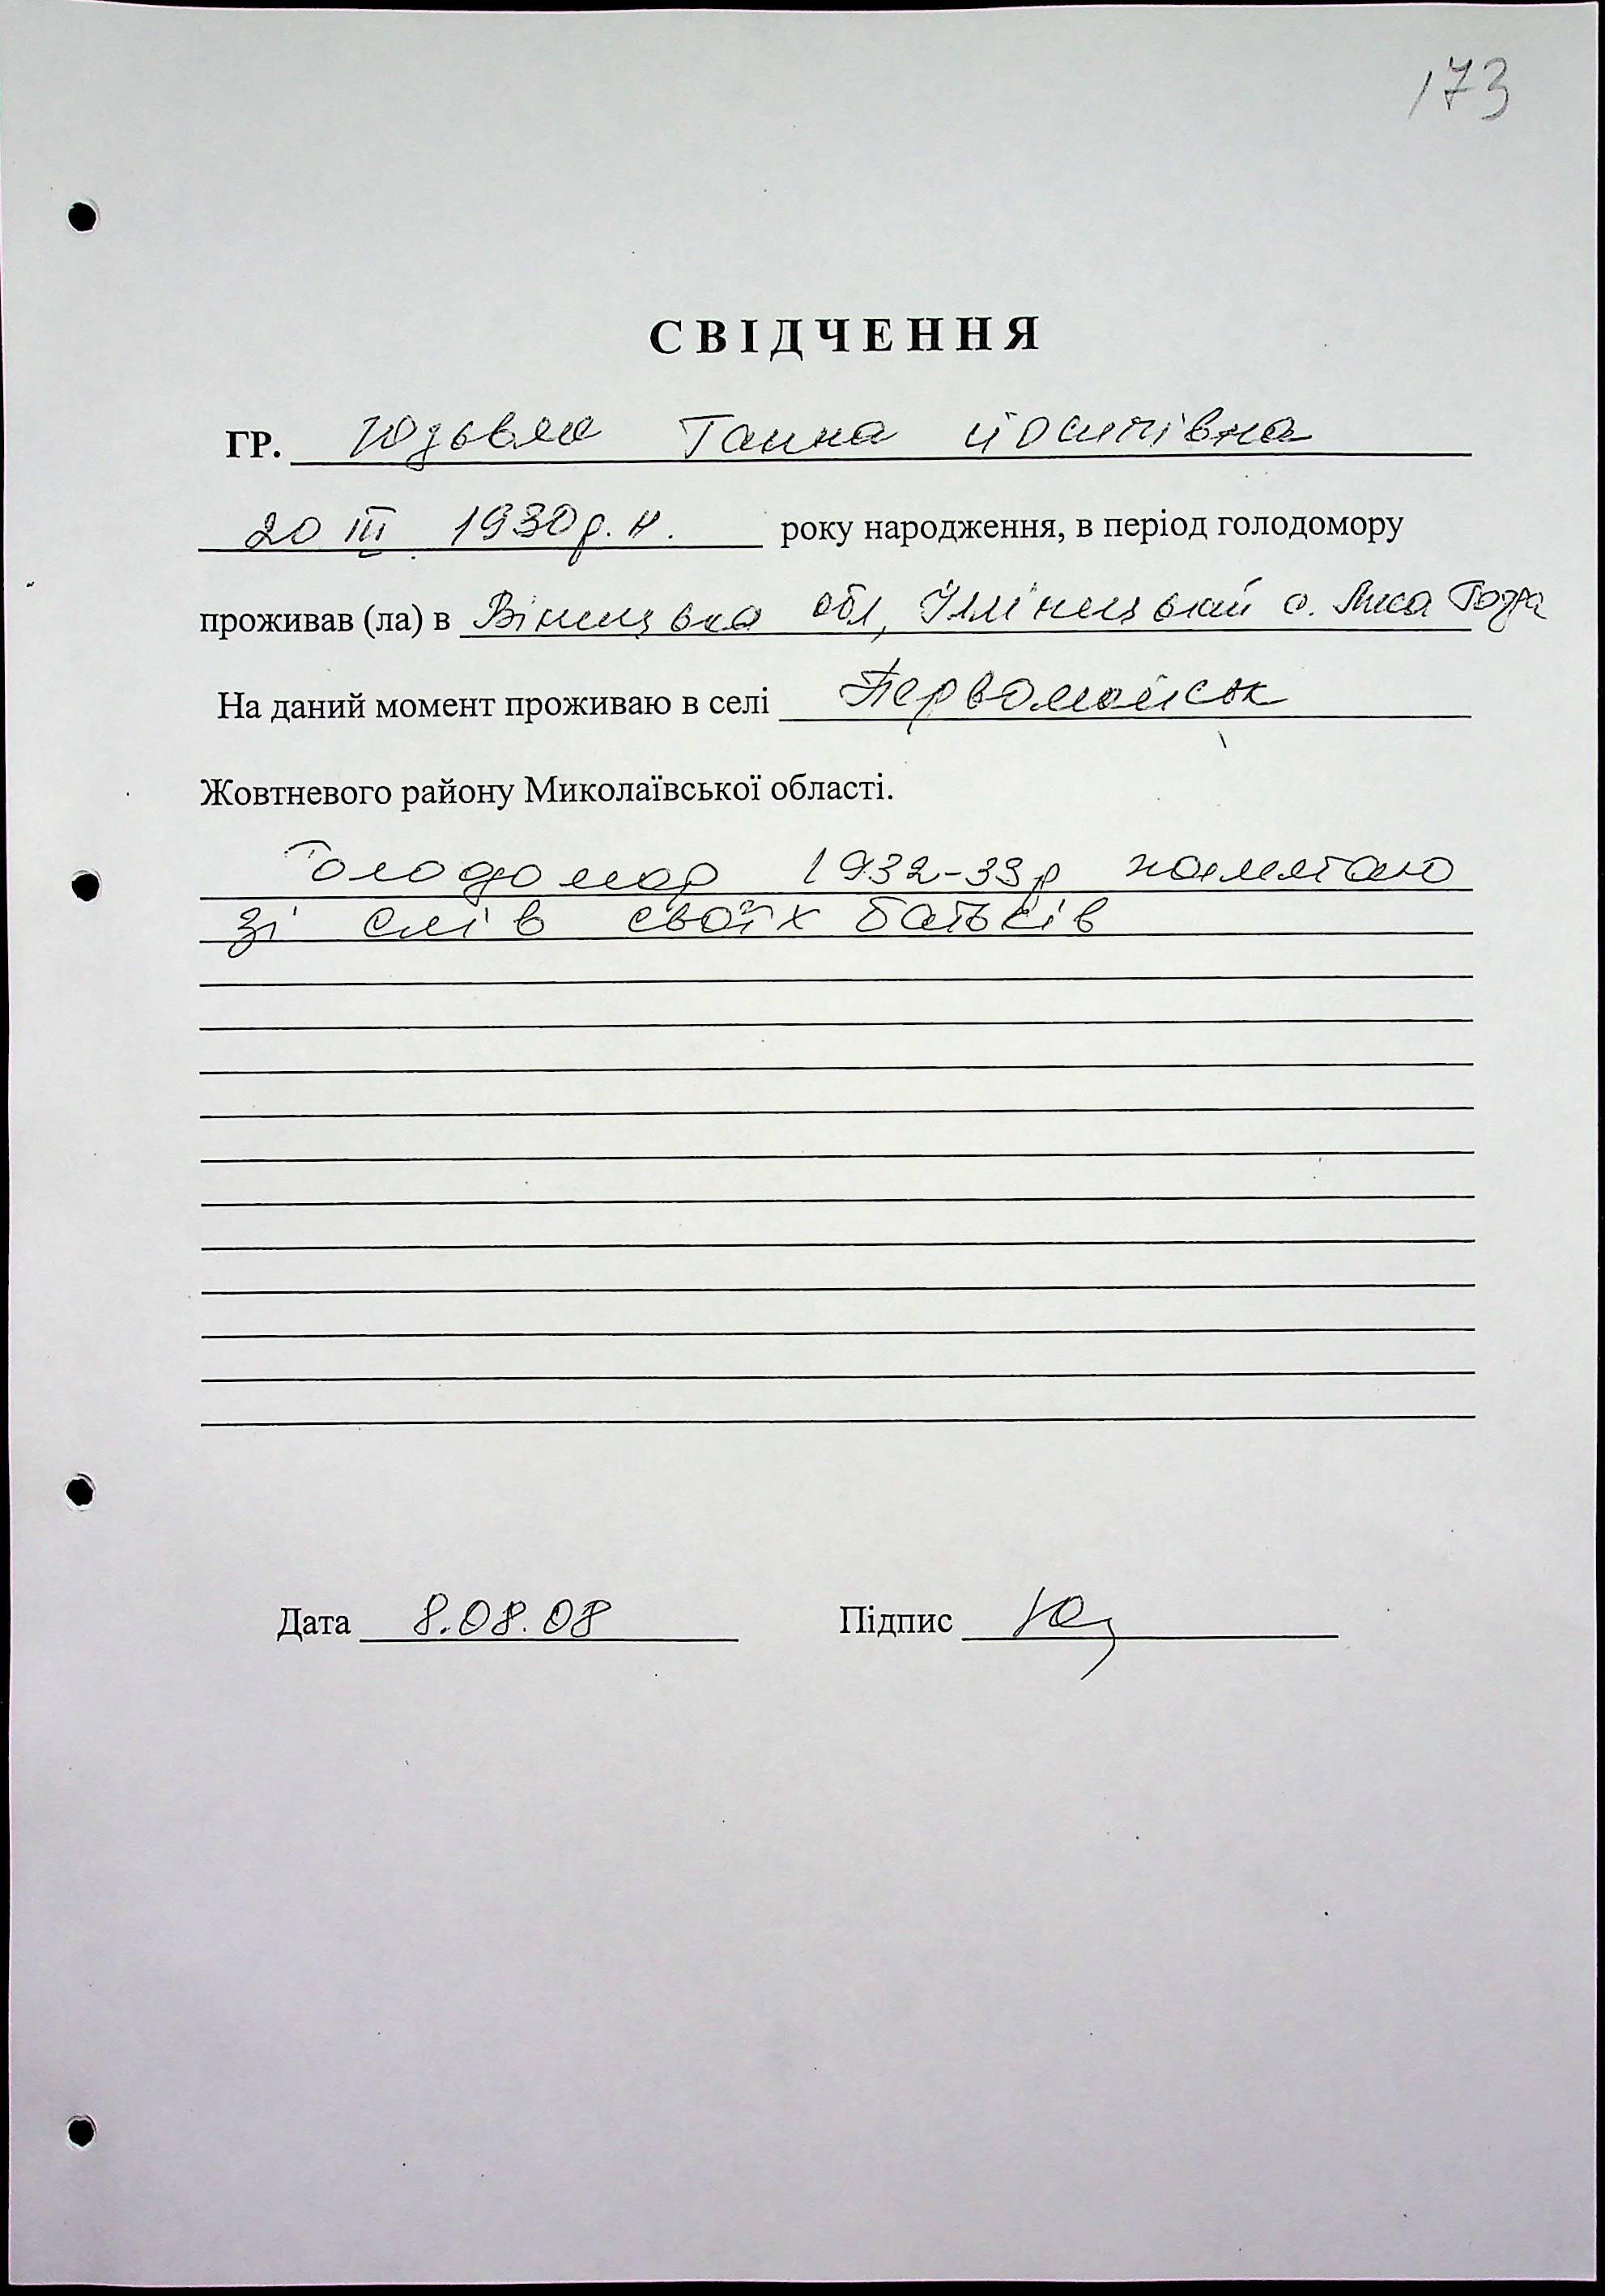 173
СВІДЧЕННЯ
ГР. Юзьвяк Ганна Йосипівна
20 III 1930 р. н. року народження, в період голодомору
проживав (ла) в Вінницька обл, Іллінецький с. Лиса Гора
На даний момент проживаю в селі Первомайськ
Жовтневого району Миколаївської області.
Голодомор 1932-33р памятаю
зі слів своїх батьків
Дата 8.08.08 Підпис Юз